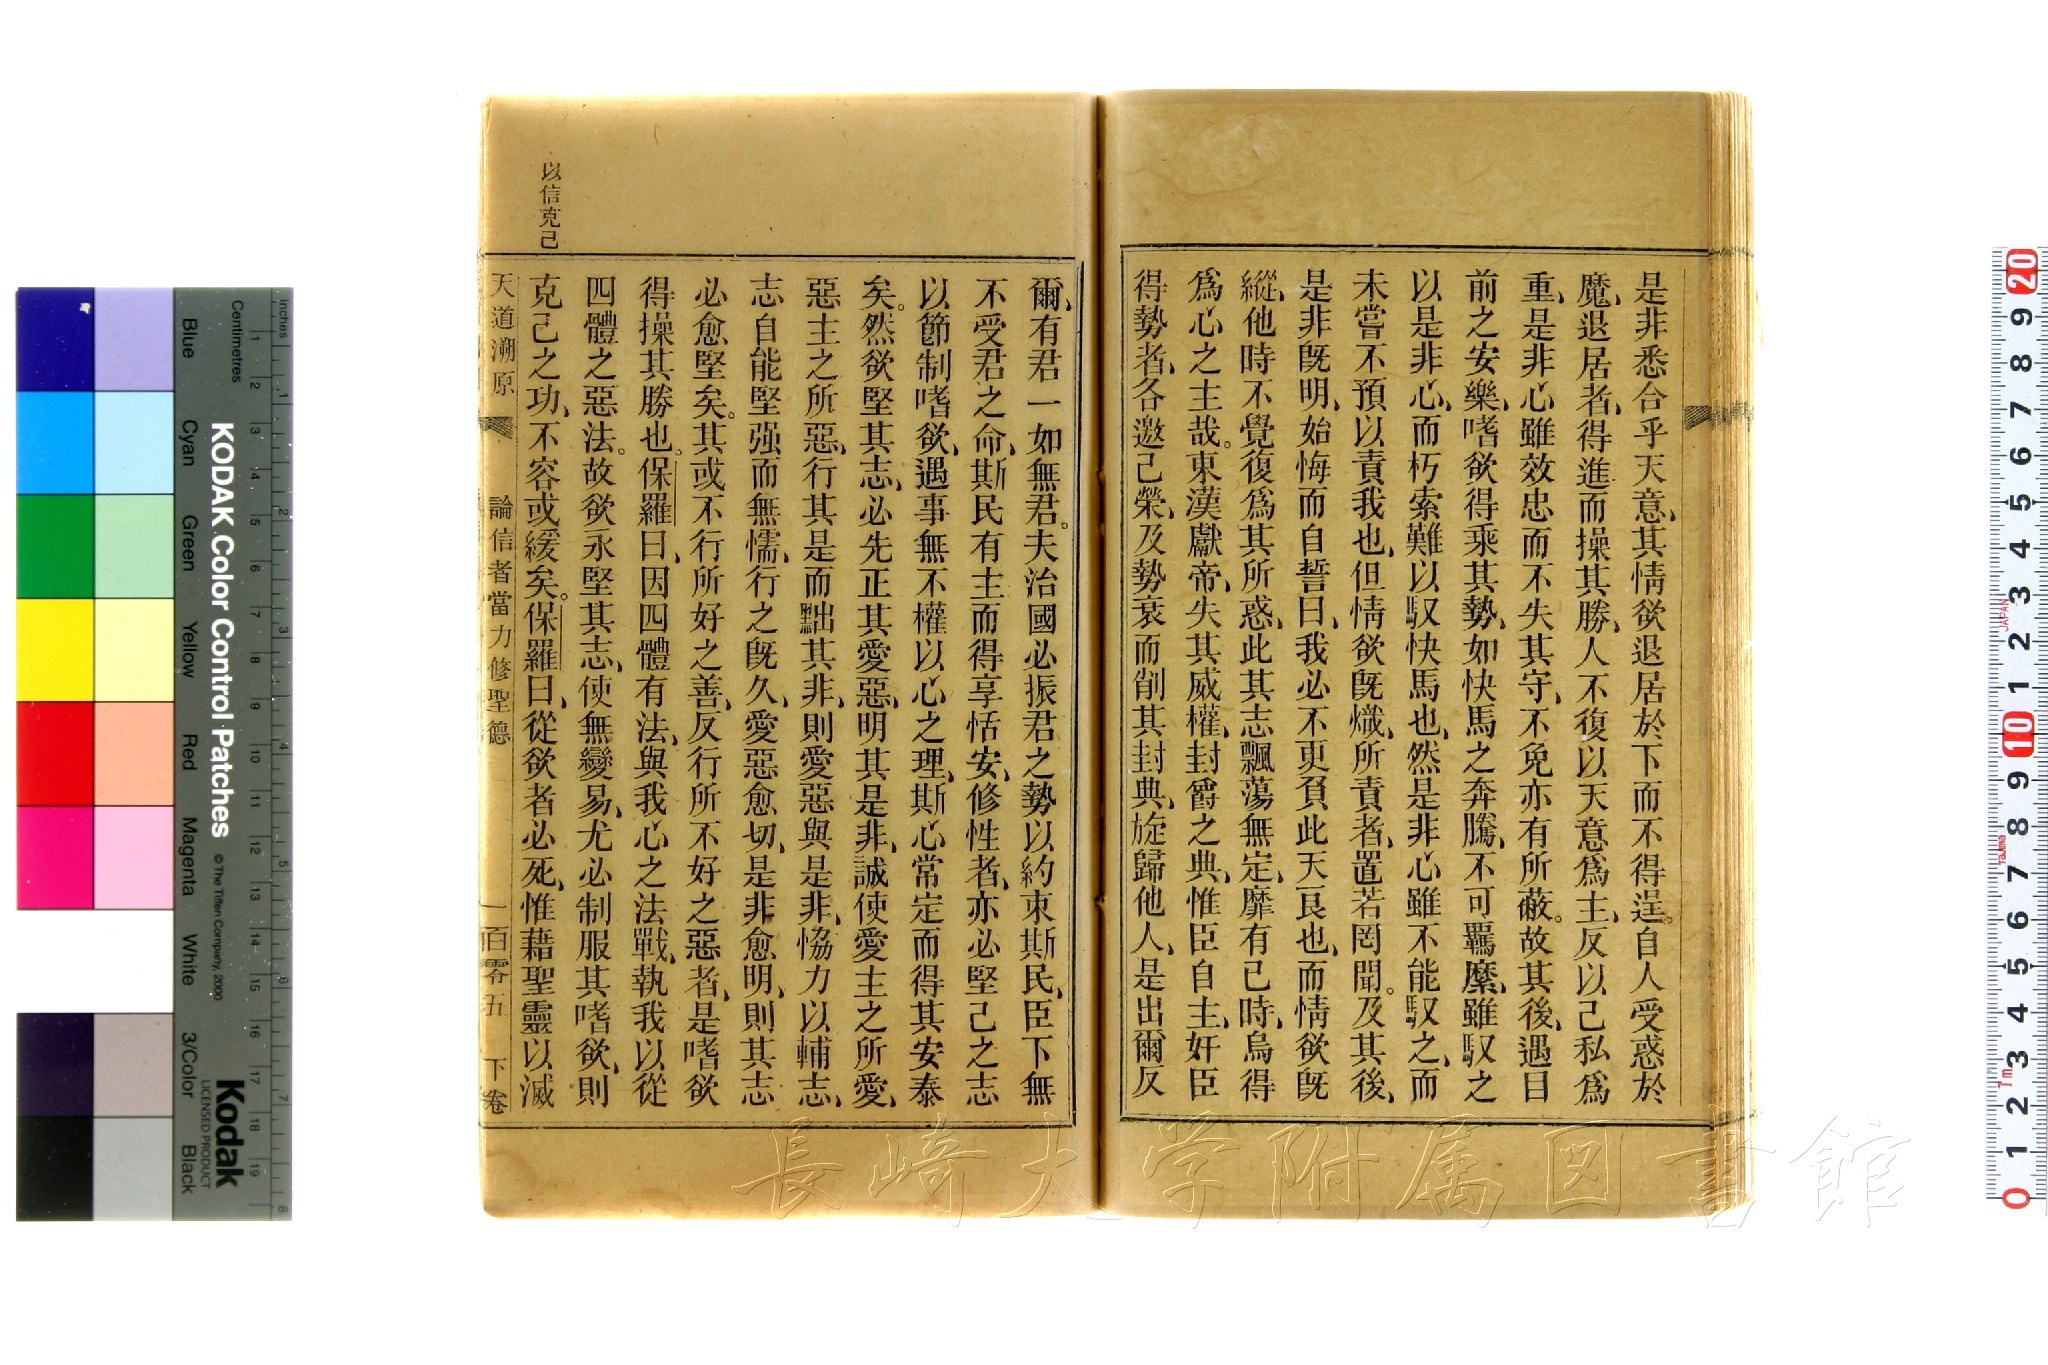 是非悉合乎天意、其情欲退居於下而不得逞。自人受惑於
魔、退居者、得進而操其勝、人不復以天意爲主、反以己私爲
重、是非心雖效忠而不失其守、不免亦有所蔽。故其後、遇目
前之安樂、嗜欲得乘其勢、如快馬之奔騰、不可羈縻、雖馭之
以是非心、而朽索難以馭快馬也、然是非心雖不能馭之、而
未嘗不預以責我也、但情欲旣熾、所責者、置若罔聞。及其後、
是非旣明、始悔而自誓曰、我必不更負此天良也、而情欲旣
縱、他時不覺復爲其所惑、此其志飄蕩無定、靡有已時、烏得
爲心之主哉。東漢獻帝、失其威權、封爵之典、惟臣自主、奸臣
得勢者、各邀己榮、及勢衰而削其封典、旋歸他人、是出爾反
以信克己
爾、有君一如無君。夫治國必振君之勢以約束斯民、臣下無
不受君之命、斯民有主而得享恬安、修性者、亦必堅己之志
以節制嗜欲、遇事無不權以心之理、斯心常定而得其安泰
矣。然欲堅其志、必先正其愛惡、明其是非、誠使愛主之所愛、
惡主之所惡、行其是而黜其非、則愛惡與是非、恊力以輔志、
志自能堅强而無懦、行之旣久、愛惡愈切、是非愈明、則其志
必愈堅矣。其或不行所好之善、反行所不好之惡者、是嗜欲
得操其勝也。保羅曰、因四體有法、與我心之法戰、執我以從
四體之惡法。故欲永堅其志、使無變易、尤必制服其嗜欲、則
克己之功、不容或緩矣。保羅曰、從欲者必死、惟藉聖靈以滅
天道溯原 論信者當力修聖德 一百零五 下卷
長崎大学附属図書館
inches
Centimetres
KODAK Color Control Patches
© The Tiffen Company, 2000
Kodak
LICENSED PRODUCT
Blue Cyan Green Yellow Red Magenta White 3/Color Black
1 2 3 4 5 6 7 8 9 10 11 12 13 14 15 16 17 18 19
1 2 3 4 5 6 7 8
20 9 8 7 6 5 4 3 2 1 10 9 8 7 6 5 4 3 2 1 0
JAPAN